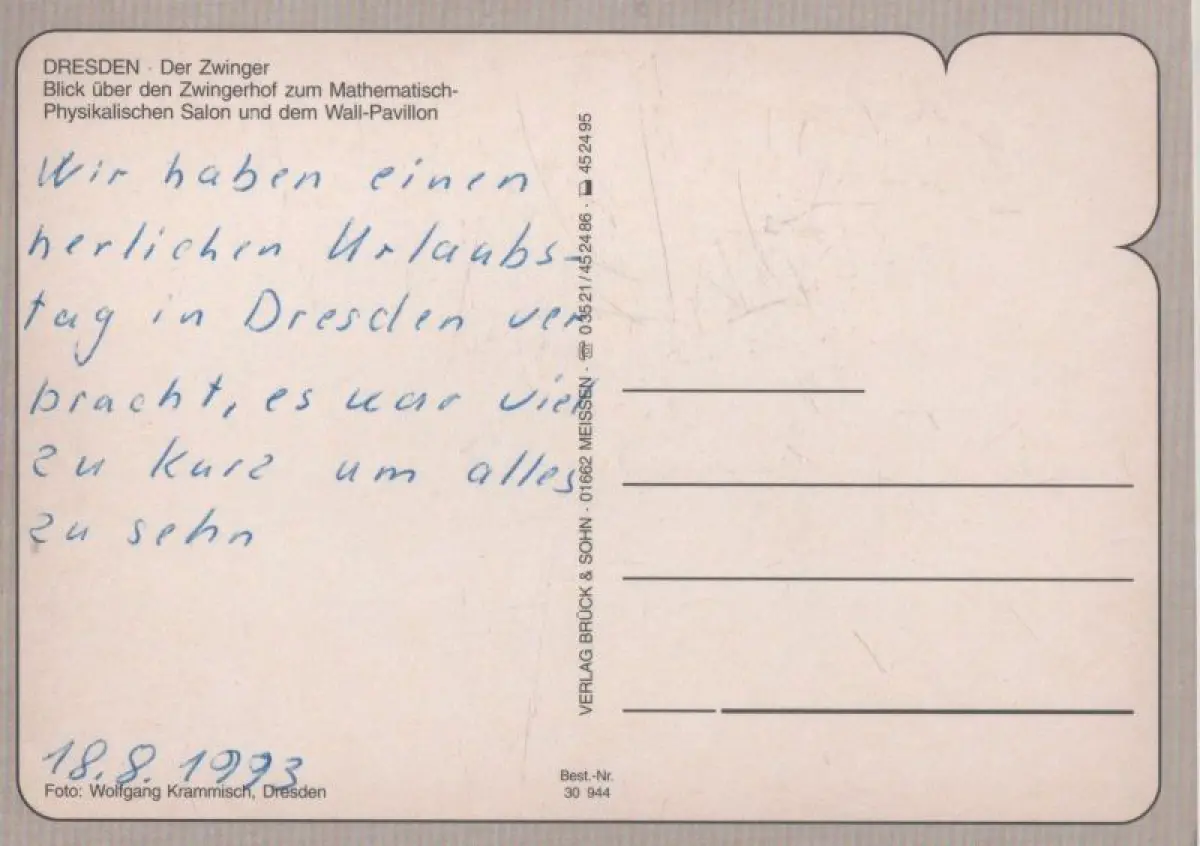 DRESDEN · Der Zwinger
Blick über den Zwingerhof zum Mathematisch-
Physikalischen Salon und dem Wall-Pavillon
Wir haben einen
herlichen Urlaubs-
tag in Dresden ver
bracht, es war viel
zu kurz um alles
zu sehn
18.8.1993
Foto: Wolfgang Krammisch, Dresden
VERLAG BRÜCK & SOHN · 01662 MEISSEN · ☏ 03521/452486 · 452495
Best.-Nr.
30 944